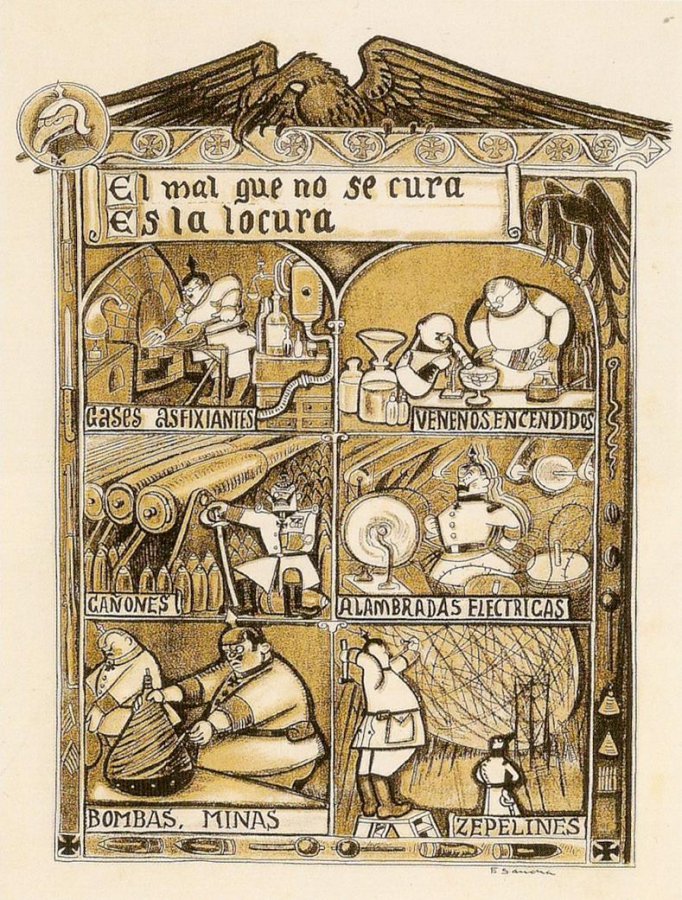 El mal que no se cura
Es la locura
GASES ASFIXIANTES
VENENOS, ENCENDIDOS
CAÑONES
ALAMBRADAS ELECTRICAS
BOMBAS, MINAS
ZEPELINES